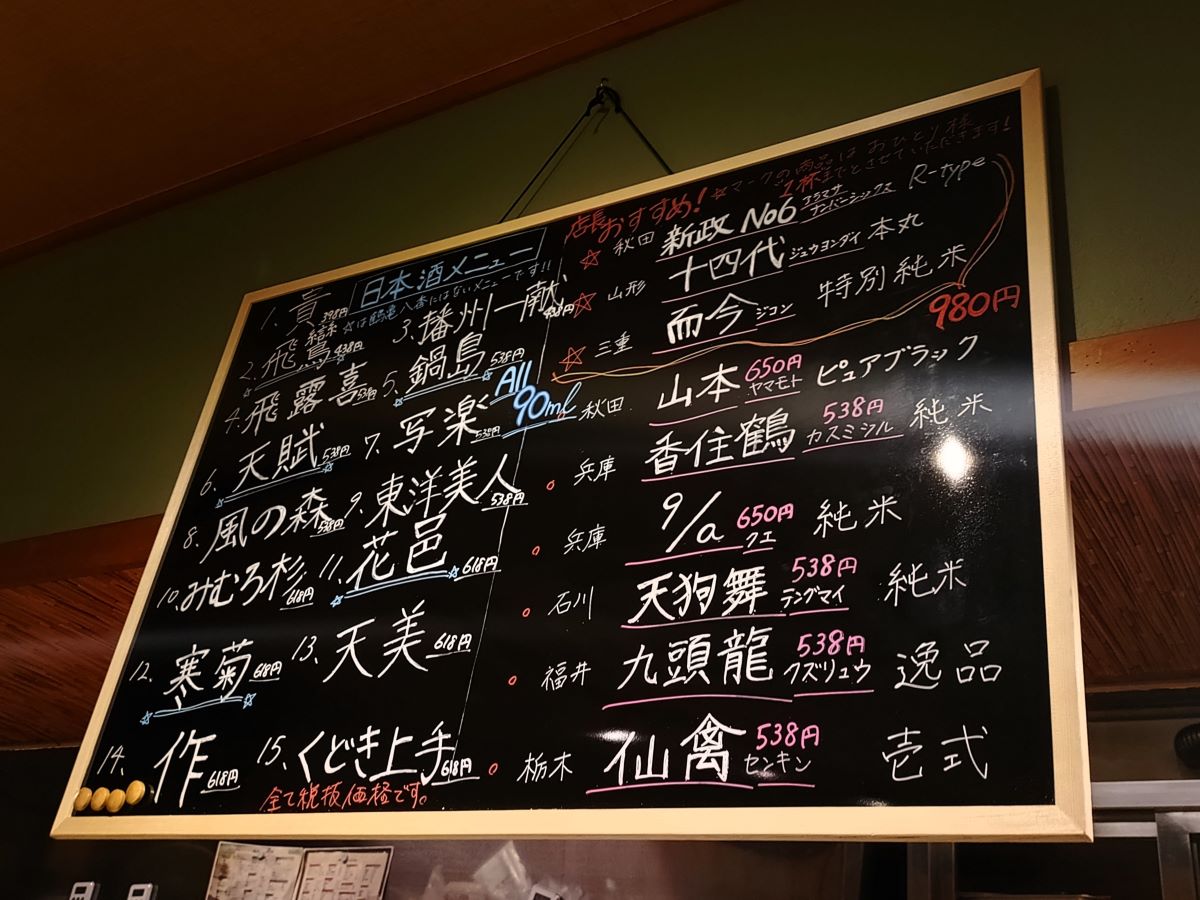 日本酒メニュー
☆は鶴亀八番にはないメニューです!!
1. 貴 398円
2. 飛鸞 結 438円
3. 播州一献
4. 飛露喜 538円
5. 鍋島 538円
All 90ml
6. 天賦 538円
7. 写楽 538円
8. 風の森 538円
9. 東洋美人 538円
10. みむろ杉 618円
11. 花邑 618円
12. 寒菊 618円
13. 天美 618円
14. 作 618円
15. くどき上手 618円
全て税抜価格です。
店長おすすめ! ☆マークの商品はおひとり様
1杯までとさせていただきます!
☆ 秋田 新政 No6 アラマサ ナンバーシックス R-type
☆ 山形 十四代 ジュウヨンダイ 本丸
☆ 三重 而今 ジコン 特別純米
980円
秋田 山本 650円 ヤマモト ピュアブラック
兵庫 香住鶴 538円 カスミヅル 純米
兵庫 9/a 650円 クエ 純米
石川 天狗舞 538円 テングマイ 純米
福井 九頭龍 538円 クズリュウ 逸品
栃木 仙禽 538円 センキン 壱式